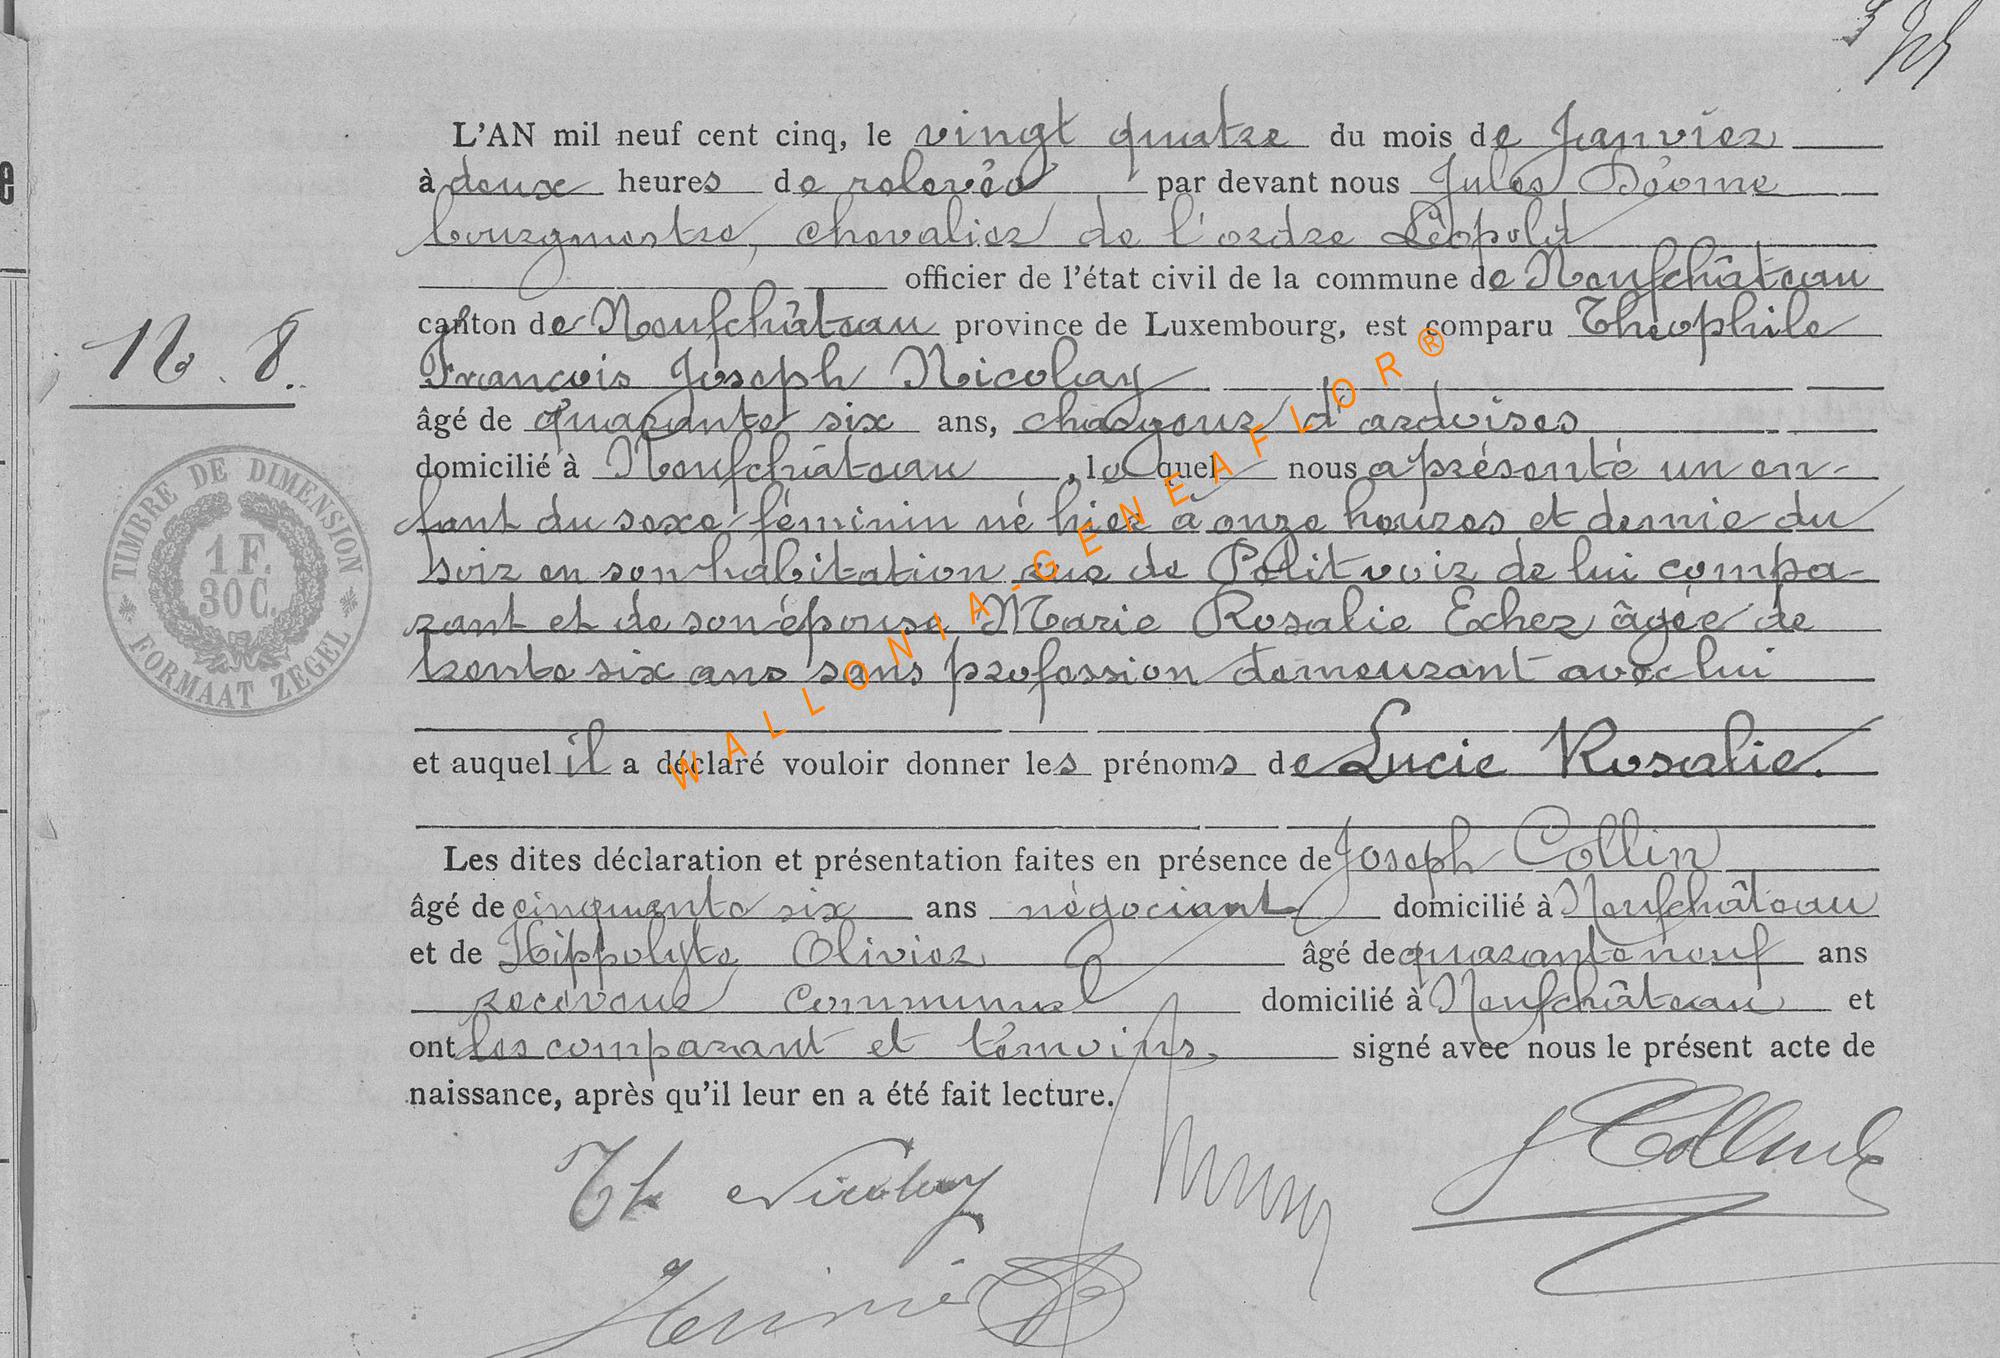 L'AN mil neuf cent cinq, le vingt quatre du mois de Janvier
à deux heures de relevée par devant nous Jules
bourgmestre, chevalier de l'ordre Léopold
officier de l'état civil de la commune de Neufchâteau
canton de Neufchâteau province de Luxembourg, est comparu Théophile
François Joseph Nicolay
N 8.
âgé de quarante six ans, chargeur d'ardoises
domicilié à Neufchâteau, lequel nous a présenté un en-
fant du sexe féminin né hier à onze heures et demie du
soir en son habitation rue de de lui compa-
rant et de son épouse Marie Rosalie Echer âgée de
trente six ans sans profession demeurant avec lui
et auquel il a déclaré vouloir donner les prénoms de Lucie Rosalie.
Les dites déclaration et présentation faites en présence de Joseph Collin
âgé de cinquante six ans négociant domicilié à Neufchâteau
et de Hippolyte Olivier âgé de quarante neuf ans
receveur communal domicilié à Neufchâteau et
ont les comparant et témoins, signé avec nous le présent acte de
naissance, après qu'il leur en a été fait lecture.
Th Nicolay
J Collin
TIMBRE DE DIMENSION
1 F.
30 C.
FORMAAT ZEGEL
WALLONIA-GENEAFLOR®